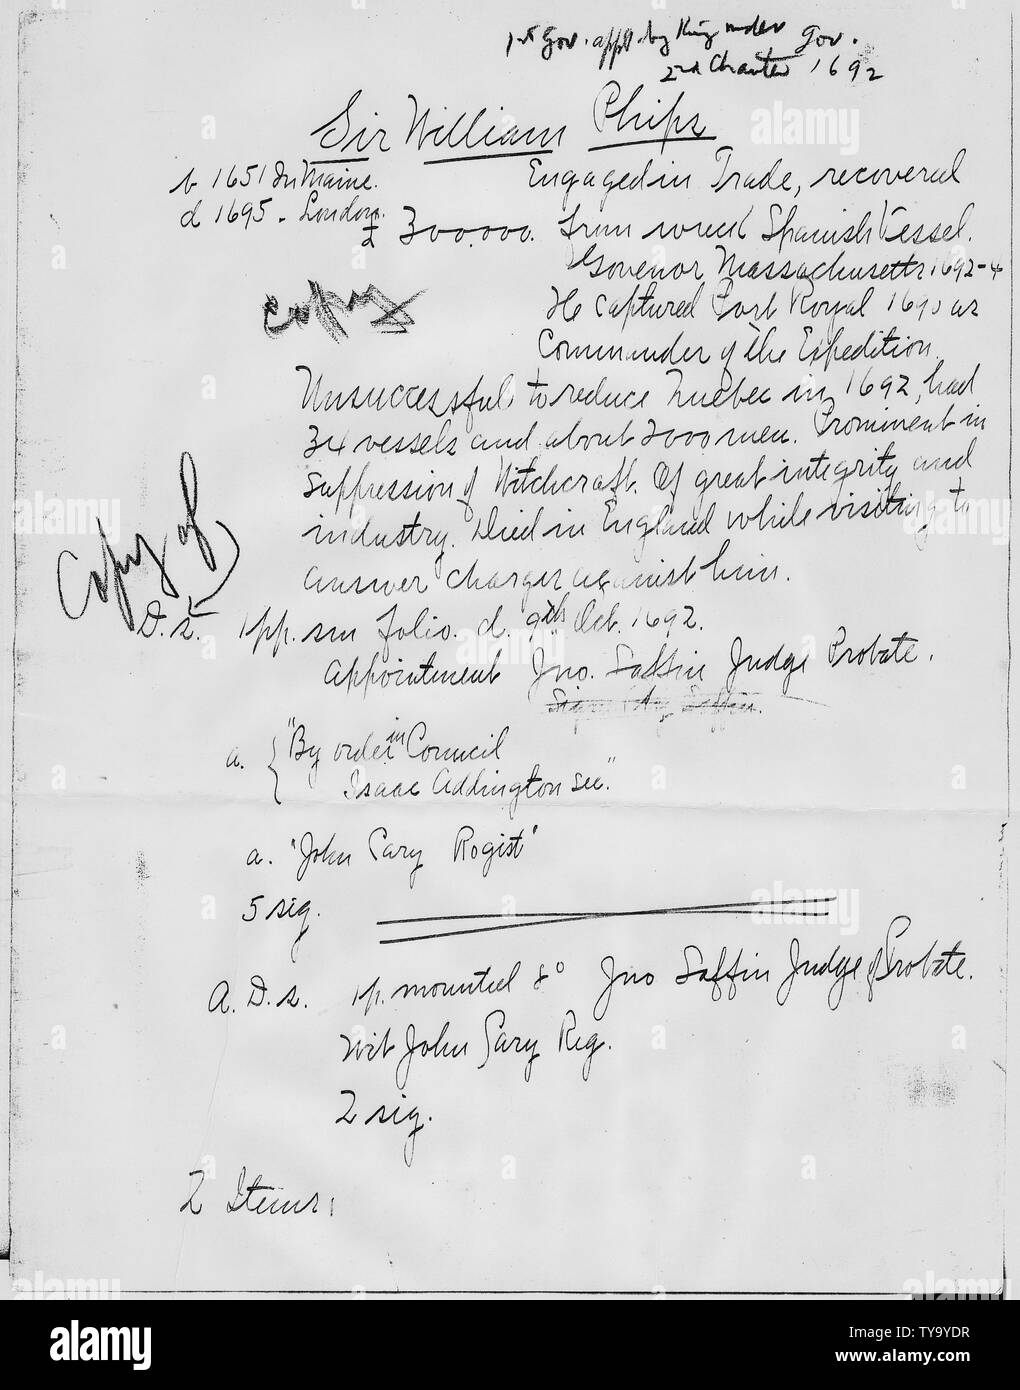 1st Gov. appt. by King under Gov.
2nd Charter 1692
Sir William Phips
b 1651 In Maine.
d 1695 - London.
Engaged in Trade, recovered
£ 300.000. from wreck Spanish Vessel.
Govenor Massachusetts 1692-4
He captured Port Royal 1690 as
Commander of the Expedition.
copy
Unsuccessful to reduce Quebec in 1692, had
34 vessels and about 2000 men. Prominent in
suppression of Witchcraft. Of great integrity and
industry. Died in England while visiting to
answer charges against him.
Copy of
D.s. 1pp. sm folio. d. 9th Oct. 1692.
Appointment Jno. Saffin Judge Probate.
Signed by Saffin.
a. { "By order in Council
Isaac Addington sec."
a. "John Cary Regist"
5 sig.
A.D.s. 1p. mounted 8° Jno Saffin Judge of Probate.
Wit John Cary Reg.
2 sig.
2 Items.
alamy
Image ID: TY9YDR
www.alamy.com